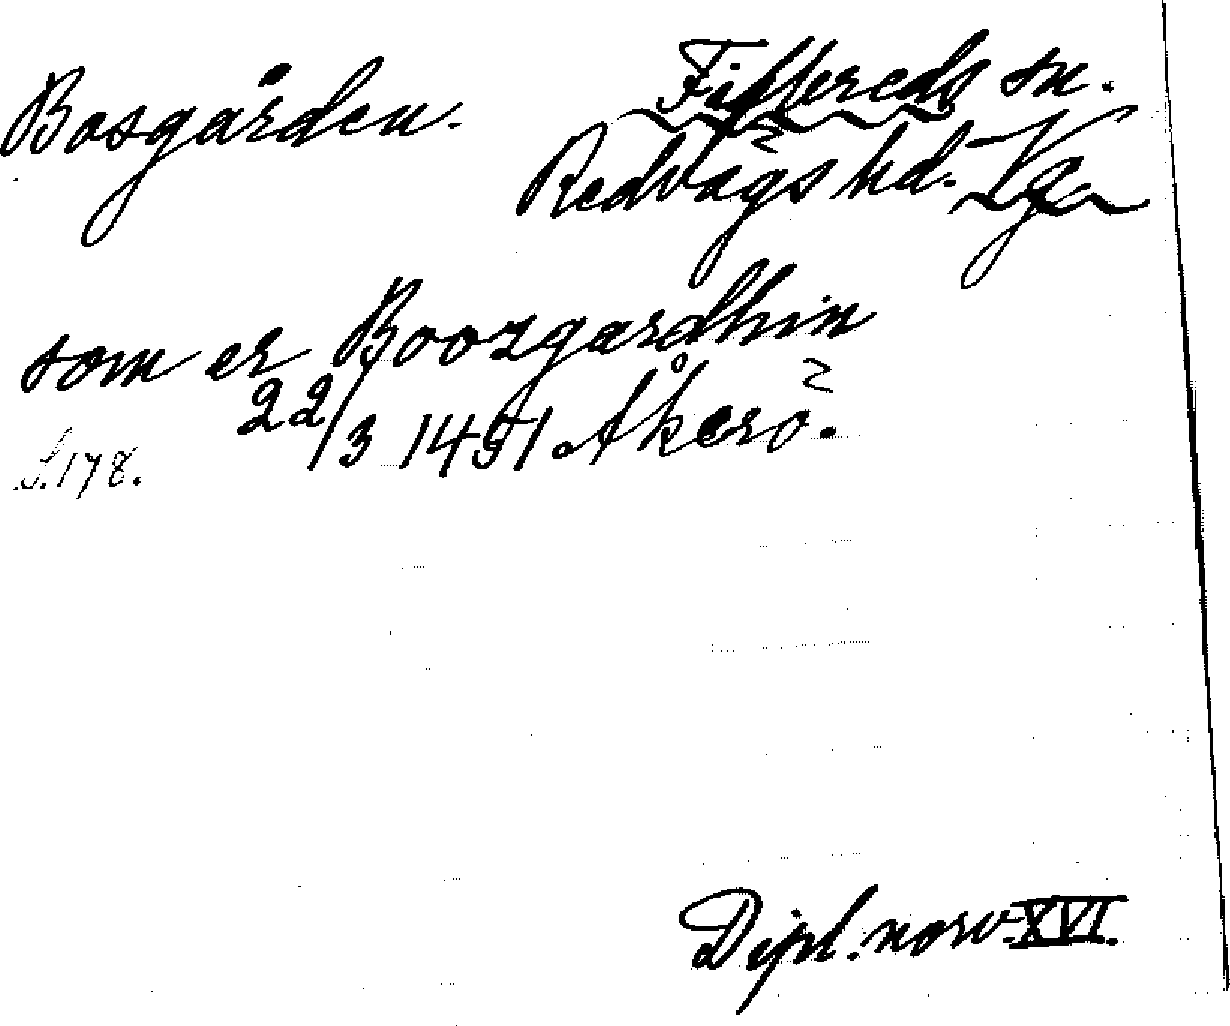 Bosgården.
Fiffereds sn.
Redvägs hd. Vg
som er Boozgardhin
22/3 1451 Åkerö.
S. 178.
Dipl. norv. XVI.